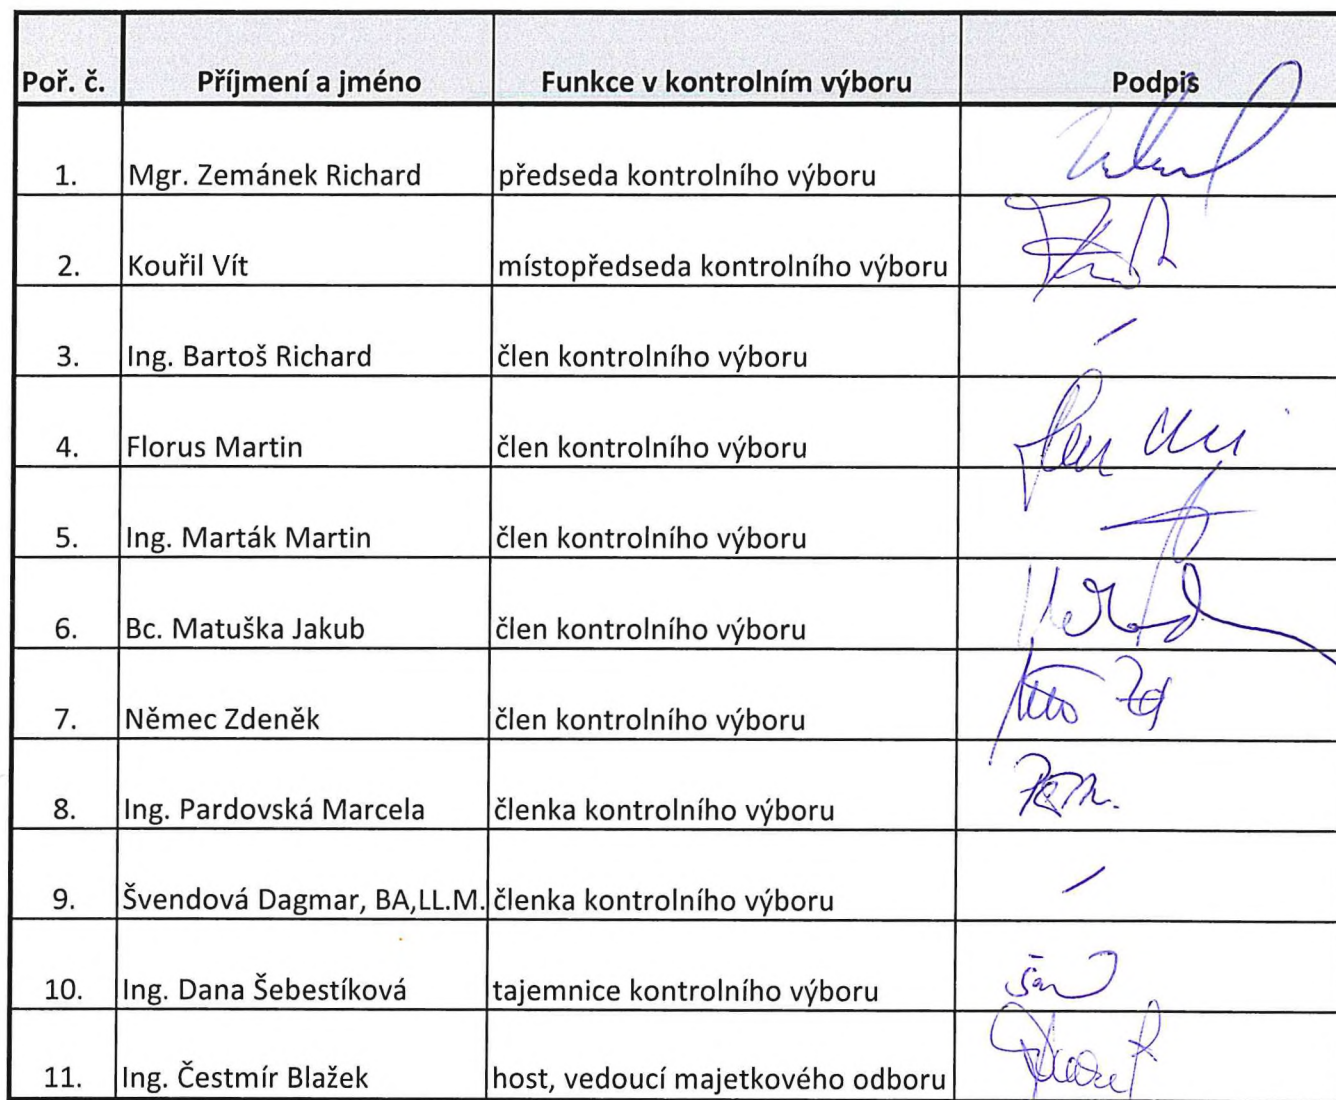 Poř. č. Příjmení a jméno Funkce v kontrolním výboru Podpis
1. Mgr. Zemánek Richard předseda kontrolního výboru
2. Kouřil Vít místopředseda kontrolního výboru
3. Ing. Bartoš Richard člen kontrolního výboru
4. Florus Martin člen kontrolního výboru
5. Ing. Marták Martin člen kontrolního výboru
6. Bc. Matuška Jakub člen kontrolního výboru
7. Němec Zdeněk člen kontrolního výboru
8. Ing. Pardovská Marcela členka kontrolního výboru
9. Švendová Dagmar, BA,LL.M. členka kontrolního výboru
10. Ing. Dana Šebestíková tajemnice kontrolního výboru
11. Ing. Čestmír Blažek host, vedoucí majetkového odboru